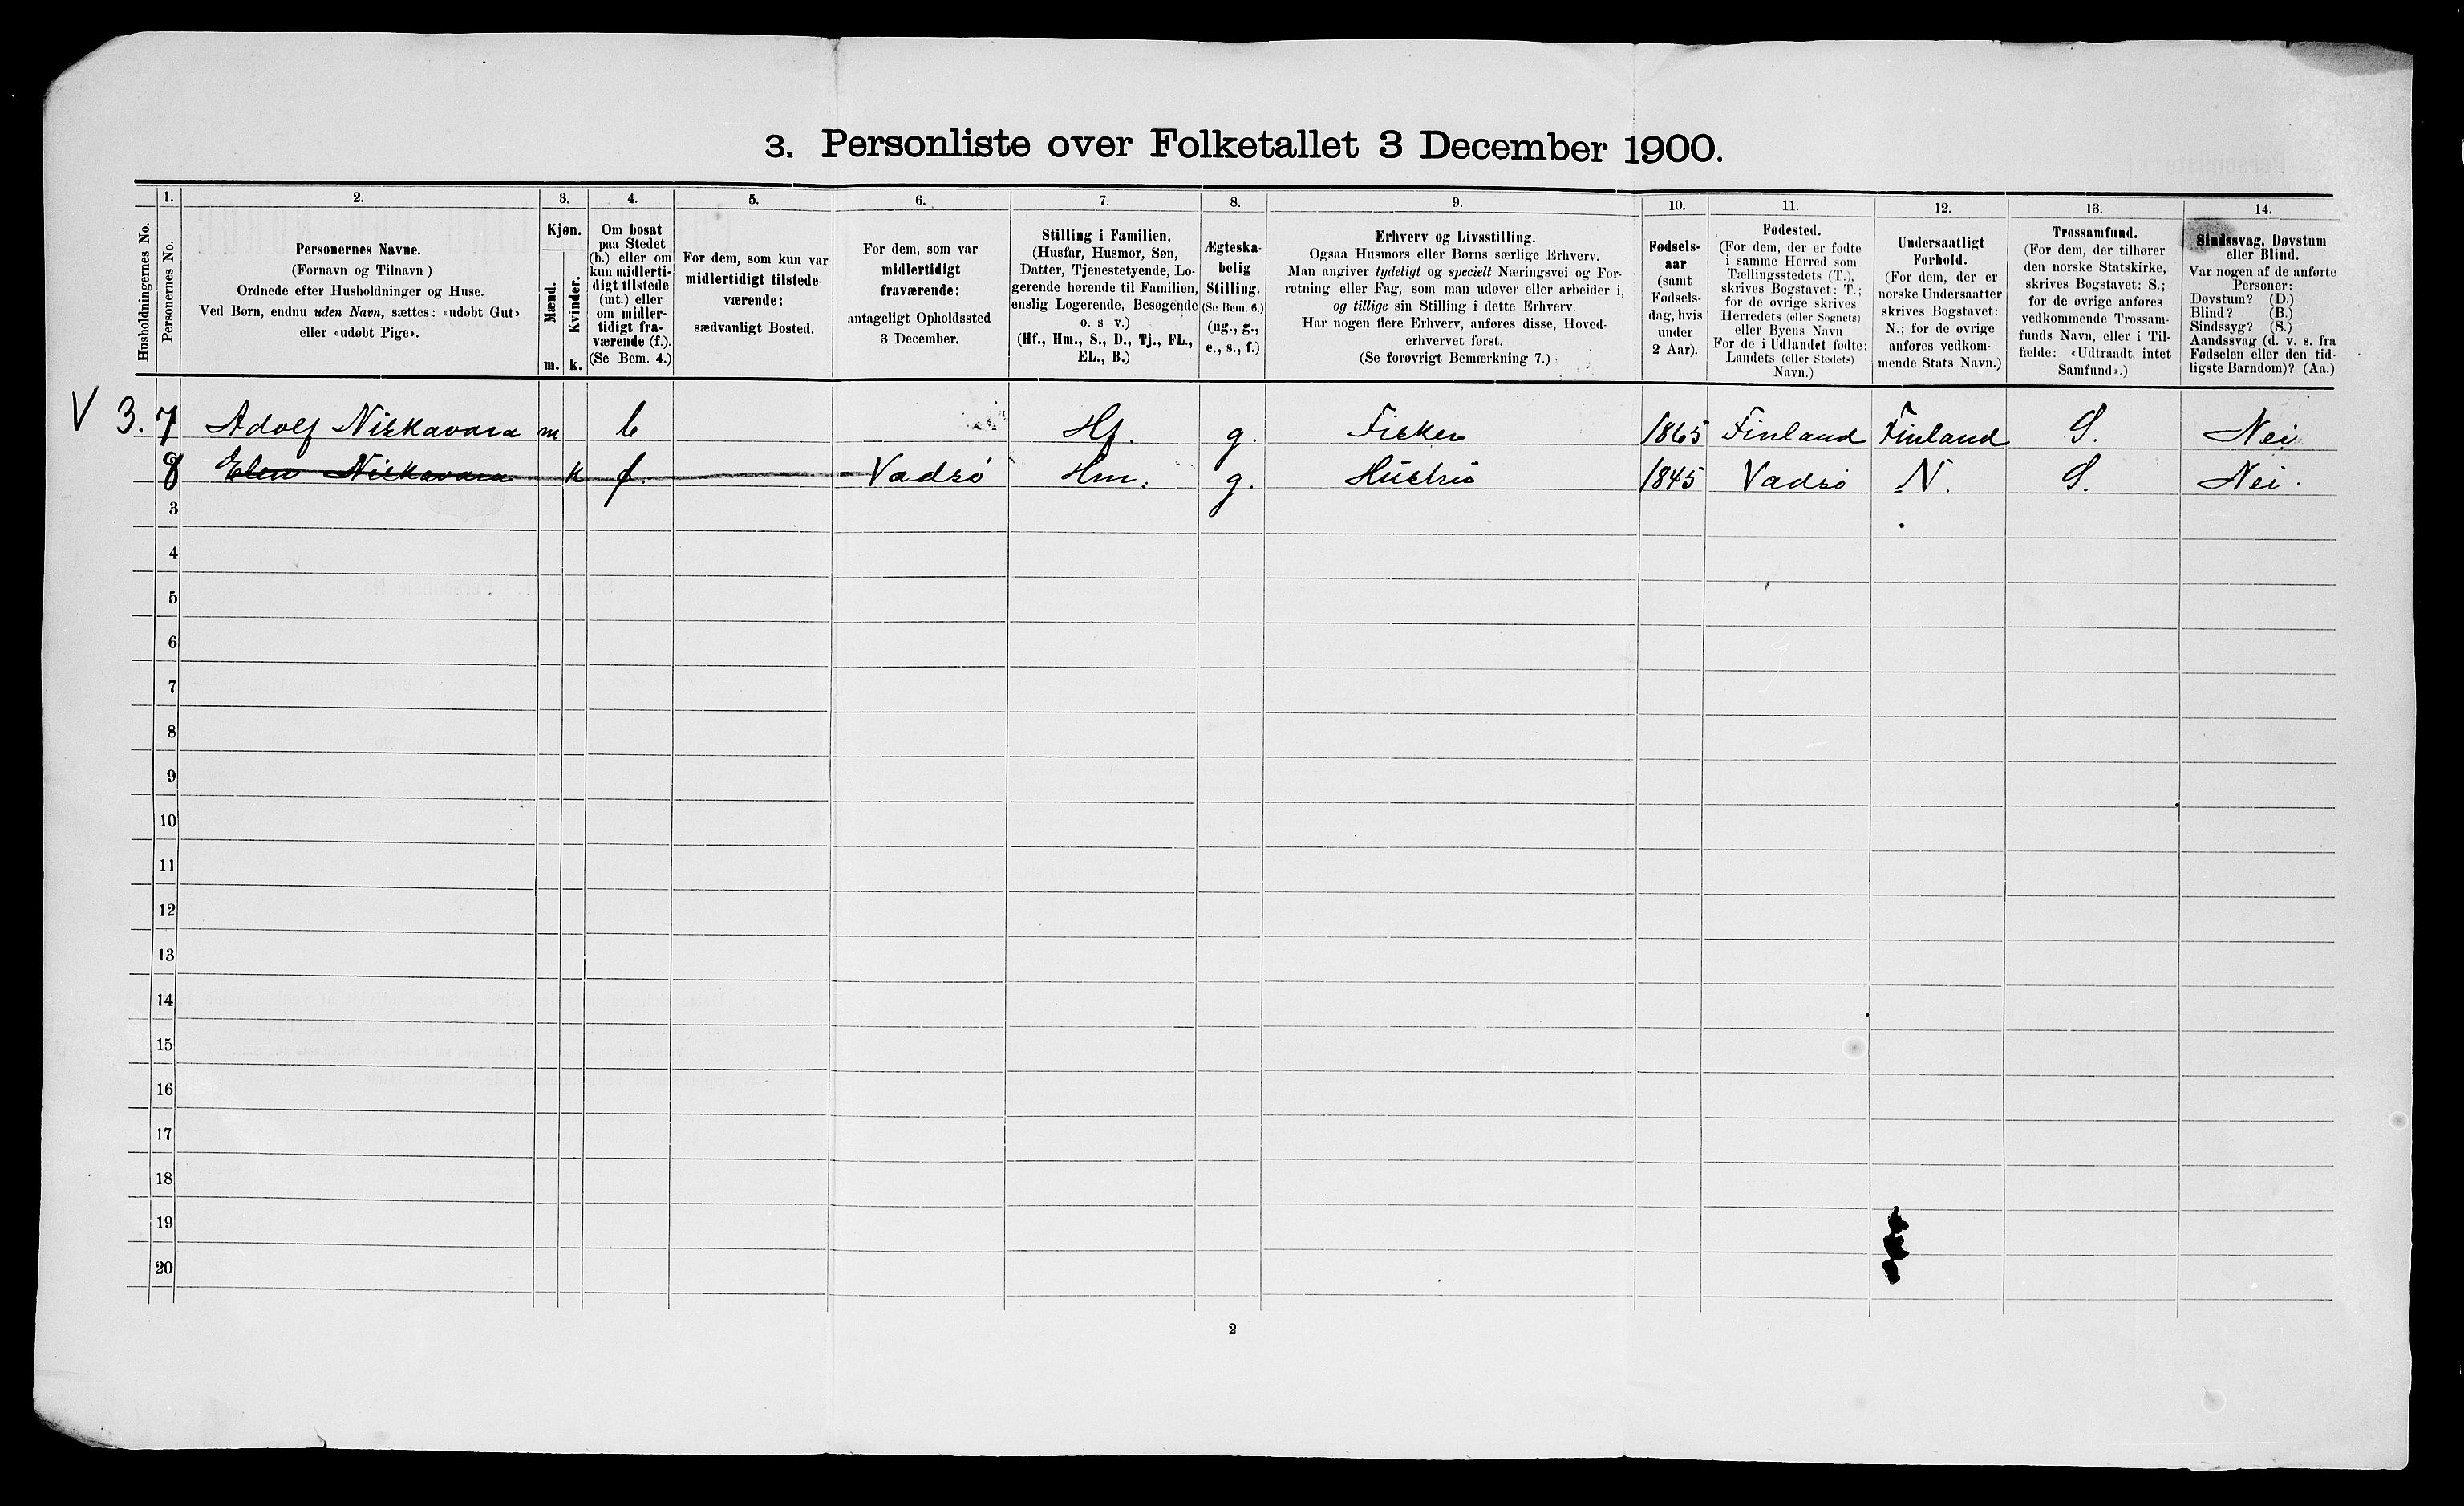 3. Personliste over Folketallet 3 December 1900.
Husholdningernes No.
1.
Personernes No.
2.
Personernes Navne.
(Fornavn og Tilnavn )
Ordnede efter Husholdninger og Huse.
Ved Børn, endnu uden Navn, sættes: «udøbt Gut»
eller «udøbt Pige».
3.
Kjøn.
Mænd.
m.
Kvinder.
k.
4.
Om bosat
paa Stedet
(b.) eller om
kun midlerti-
digt tilstede
(mt.) eller
om midler-
tidigt fra-
værende (f.).
(Se Bem. 4.)
5.
For dem, som kun var
midlertidigt tilstede-
værende:
sædvanligt Bosted.
6.
For dem, som var
midlertidigt
fraværende:
antageligt Opholdssted
3 December.
7.
Stilling i Familien.
(Husfar, Husmor, Søn,
Datter, Tjenestetyende, Lo-
gerende hørende til Familien,
enslig Logerende, Besøgende
o. s v.)
(Hf., Hm., S., D., Tj., FL.,
EL., B.)
8.
Ægteska-
belig
Stilling.
(Se Bem. 6.)
(ug., g.,
e., s., f.)
9.
Erhverv og Livsstilling.
Ogsaa Husmors eller Børns særlige Erhverv.
Man angiver tydeligt og specielt Næringsvei og For-
retning eller Fag, som man udøver eller arbeider i,
og tillige sin Stilling i dette Erhverv.
Har nogen flere Erhverv, anføres disse, Hoved-
erhvervet først.
(Se forøvrigt Bemærkning 7.)
10.
Fødsels-
aar
(samt
Fødsels-
dag, hvis
under
2 Aar).
11.
Fødested.
(For dem, der er fødte
i samme Herred som
Tællingsstedets (T.),
skrives Bogstavet: T.;
for de øvrige skrives
Herredets (eller Sognets)
eller Byens Navn
For de i Udlandet fødte:
Landets (eller Stedets)
Navn.)
12.
Undersaatligt
Forhold.
(For dem, der er
norske Undersaatter
skrives Bogstavet:
N.; for de øvrige
anføres vedkom-
mende Stats Navn.)
13.
Trossamfund.
(For dem, der tilhører
den norske Statskirke,
skrives Bogstavet: S.;
for de øvrige anføres
vedkommende Trossam-
funds Navn, eller i Til-
fælde: «Udtraadt, intet
Samfund».)
14.
Sindssvag, Døvstum
eller Blind.
Var nogen af de anførte
Personer:
Døvstum? (D.)
Blind? (B.)
Sindssyg? (S.)
Aandssvag (d. v. s. fra
Fødselen eller den tid-
ligste Barndom)? (Aa.)
V 3. 7 Adolf Niskavara m b Hf. g. Fisker 1865 Finland Finland S. Nei
8 Elen Niskavara k f. Vadsö Hm. g. Hustru 1845 Vadsö N. S. Nei.
3
4
5
6
7
8
9
10
11
12
13
14
15
16
17
18
19
20
2